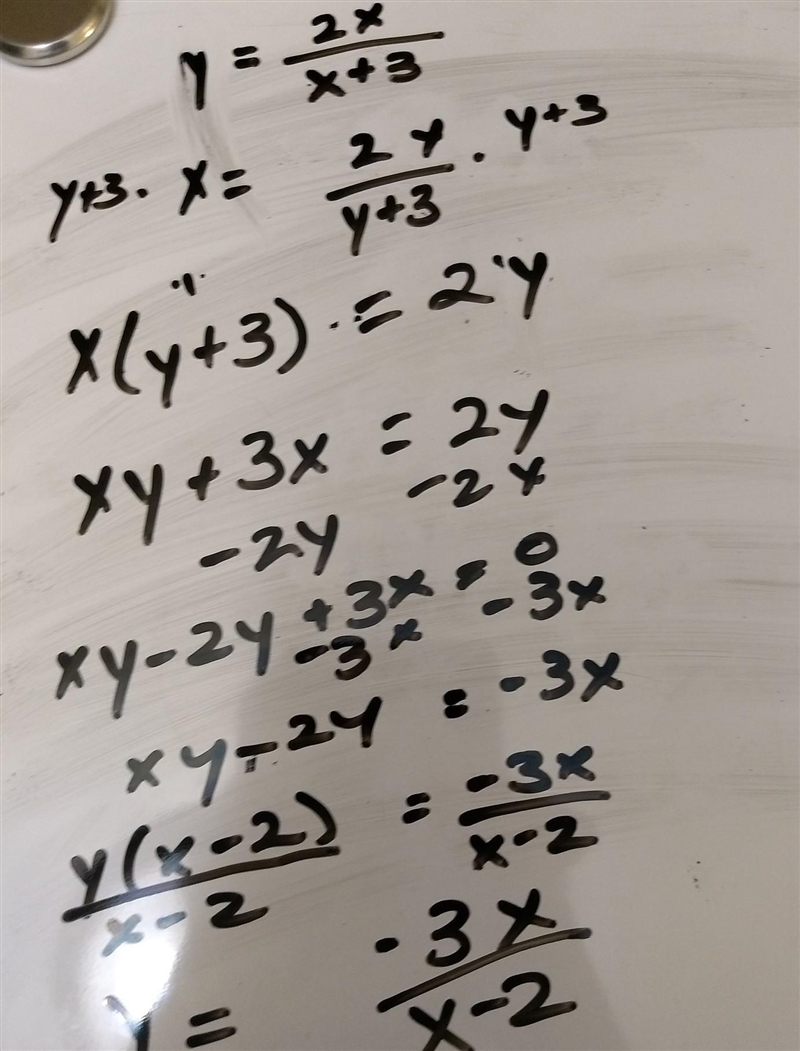 y = 2x / x+3
y+3 · x = 2y / y+3 · y+3
x(y+3) = 2y
xy + 3x = 2y
-2y -2x
xy - 2y + 3x = 0
-3x -3x
xy - 2y = -3x
y(x-2) / x-2 = -3x / x-2
y = -3x / x-2